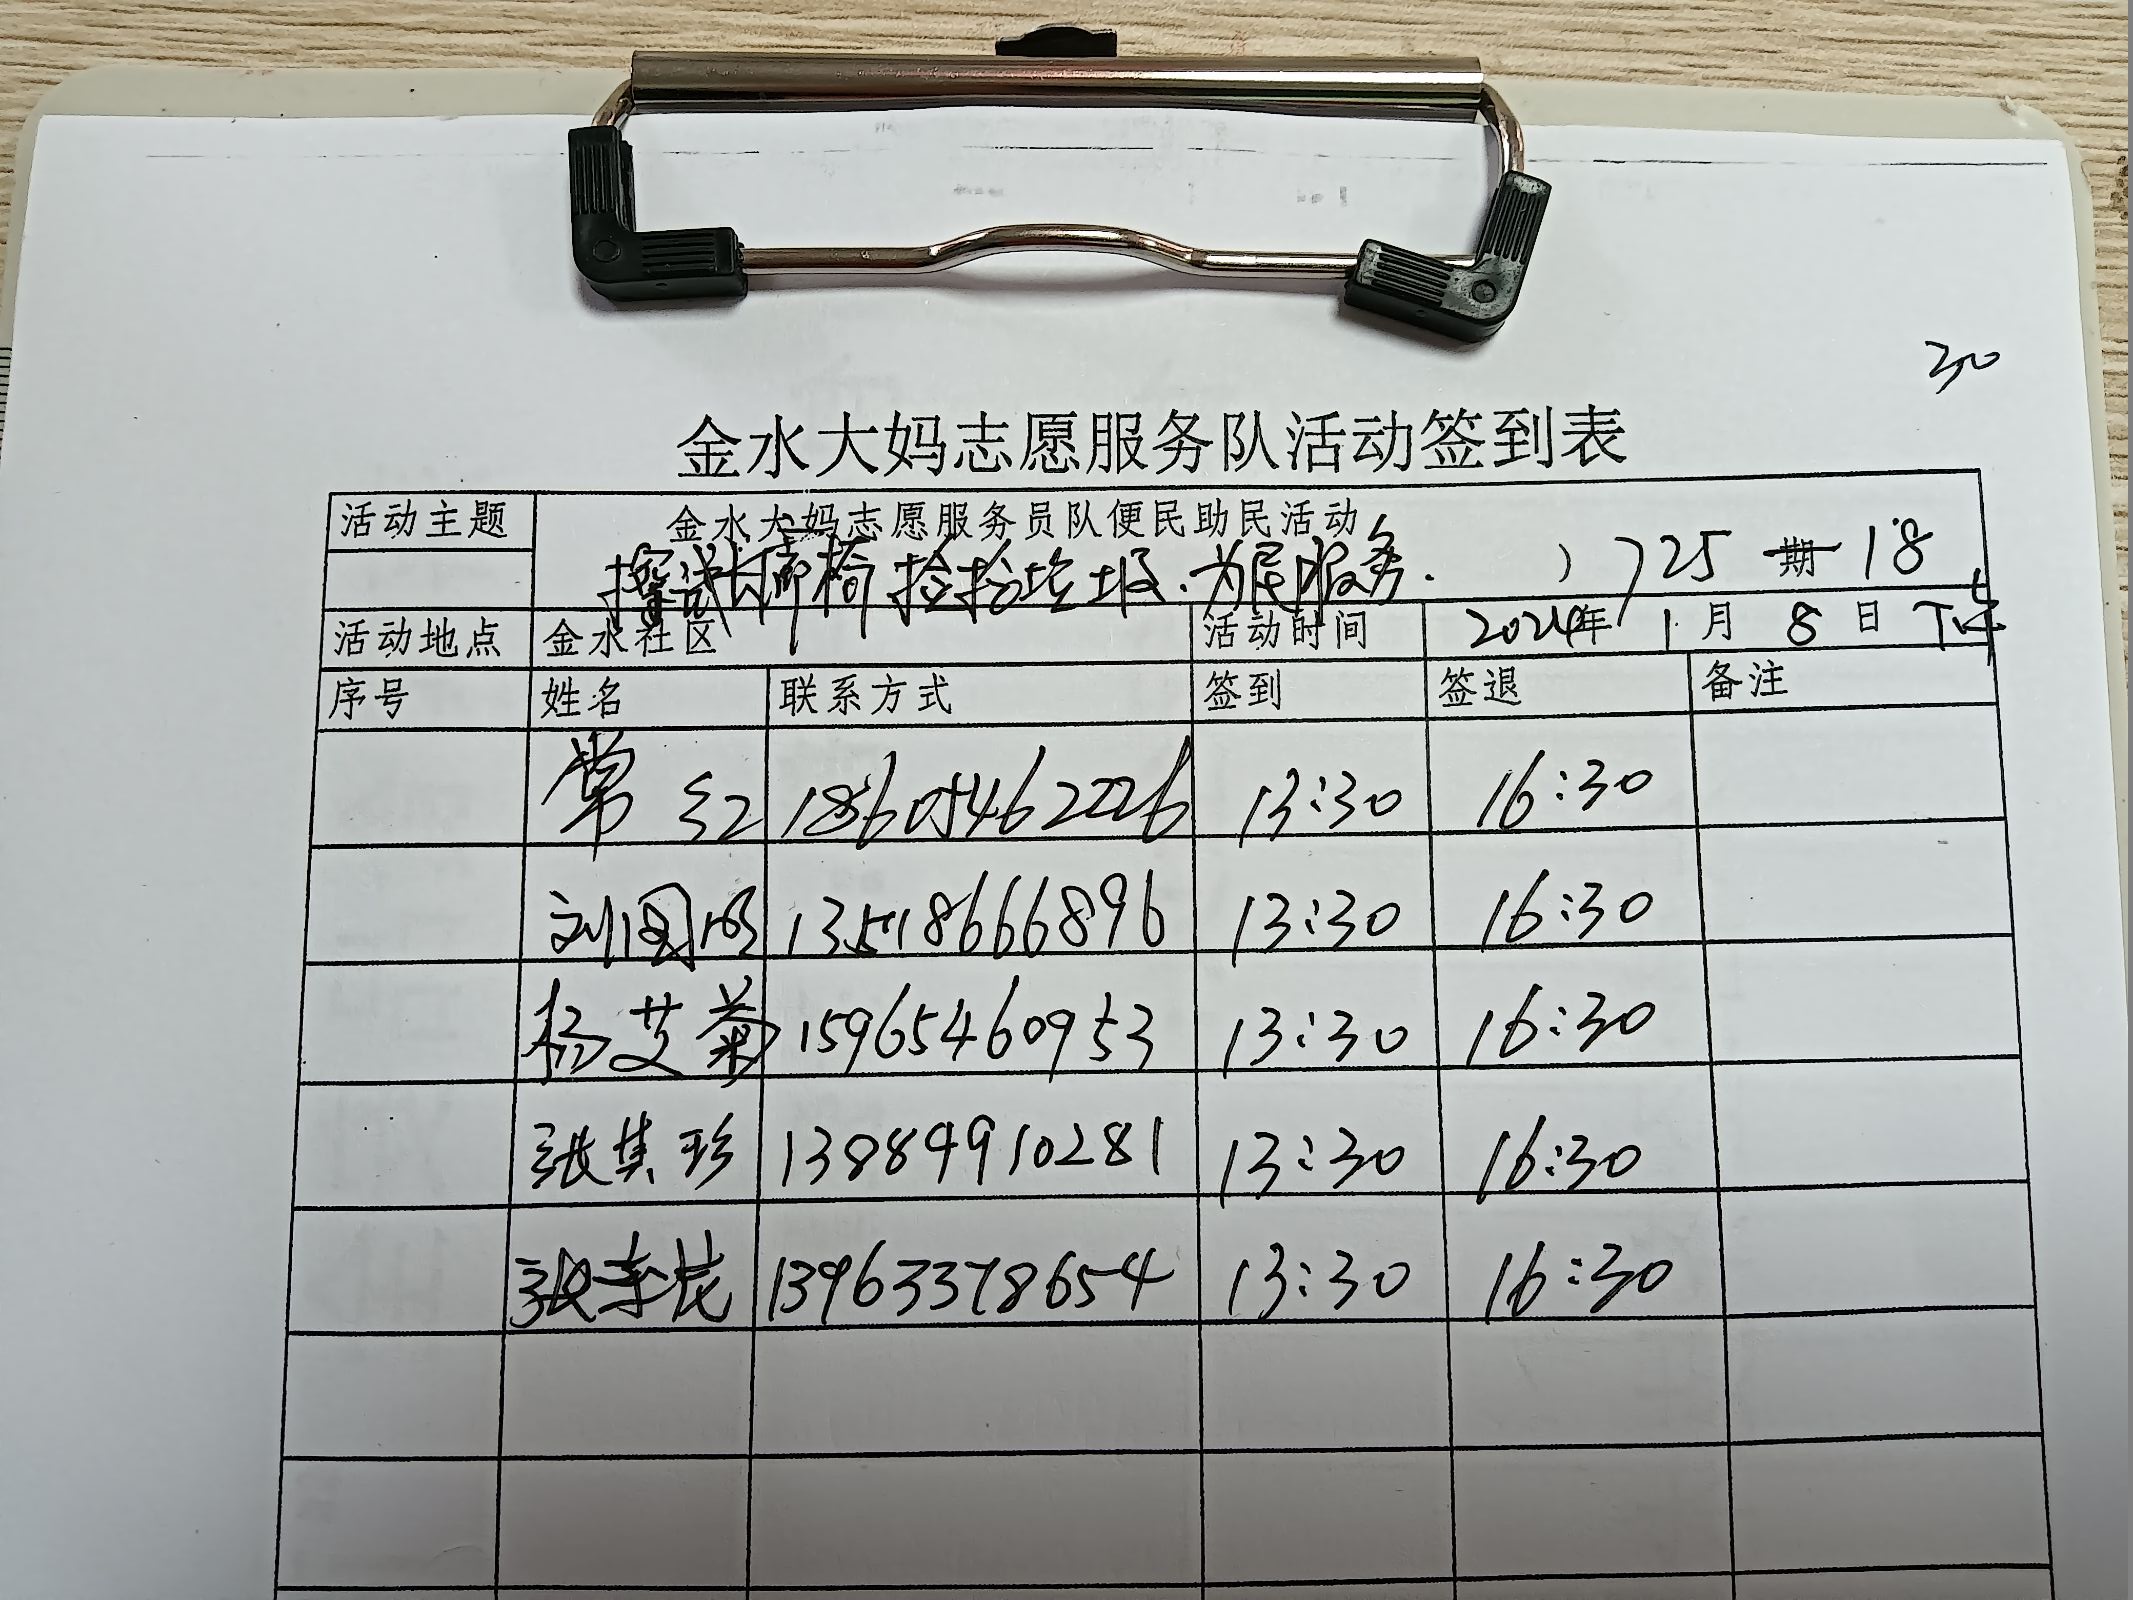 30
金水大妈志愿服务队活动签到表
活动主题 金水大妈志愿服务员队便民助民活动
长廊椅 捡拾垃圾.为民服务. 1725 期 18
活动地点 金水社区 活动时间 2024年 1月 8日 下午
序号 姓名 联系方式 签到 签退 备注
常红 18605462226 13:30 16:30
刘国明 13518666896 13:30 16:30
杨艾菊 15965460953 13:30 16:30
张其珍 138849910281 13:30 16:30
张 花 13963378654 13:30 16:30